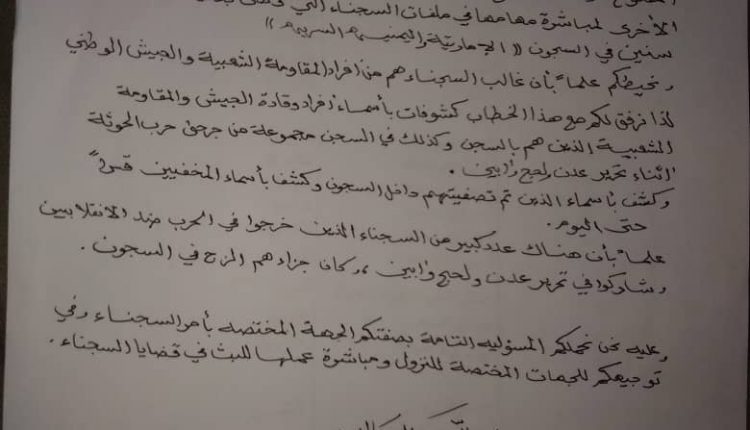 الأخرى لمباشرة مهامها في ملفات السجناء التي
سنين في السجون (( الإماراتية واليمنية السرية ))
ونحيطكم علماً بأن غالب السجناء هم من أفراد المقاومة الشعبية والجيش الوطني
لذا نرفق لكم مع هذا الخطاب كشوفات بأسماء أفراد وقادة الجيش والمقاومة
الشعبية الذين هم بالسجن وكذلك في السجن مجموعة من جرحى حرب الحوثة
أثناء تحرير عدن ولحج وأبين .
وكشف بأسماء الذين تم تصفيتهم داخل السجون وكشف بأسماء المخفيين قسراً
حتى اليوم .
علماً بأن هناك عدد كبير من السجناء الذين خرجوا في الحرب ضد الانقلابيين
وشاركوا في تحرير عدن ولحج وأبين ، وكان جزاءهم الزج في السجون .
وعليه نحن نحملكم المسؤلية التامة بصفتكم الجهة المختصه بأمر السجناء وفي
توجيهكم للجهات المختصة للنزول ومباشرة عملها للبث في قضايا السجناء .